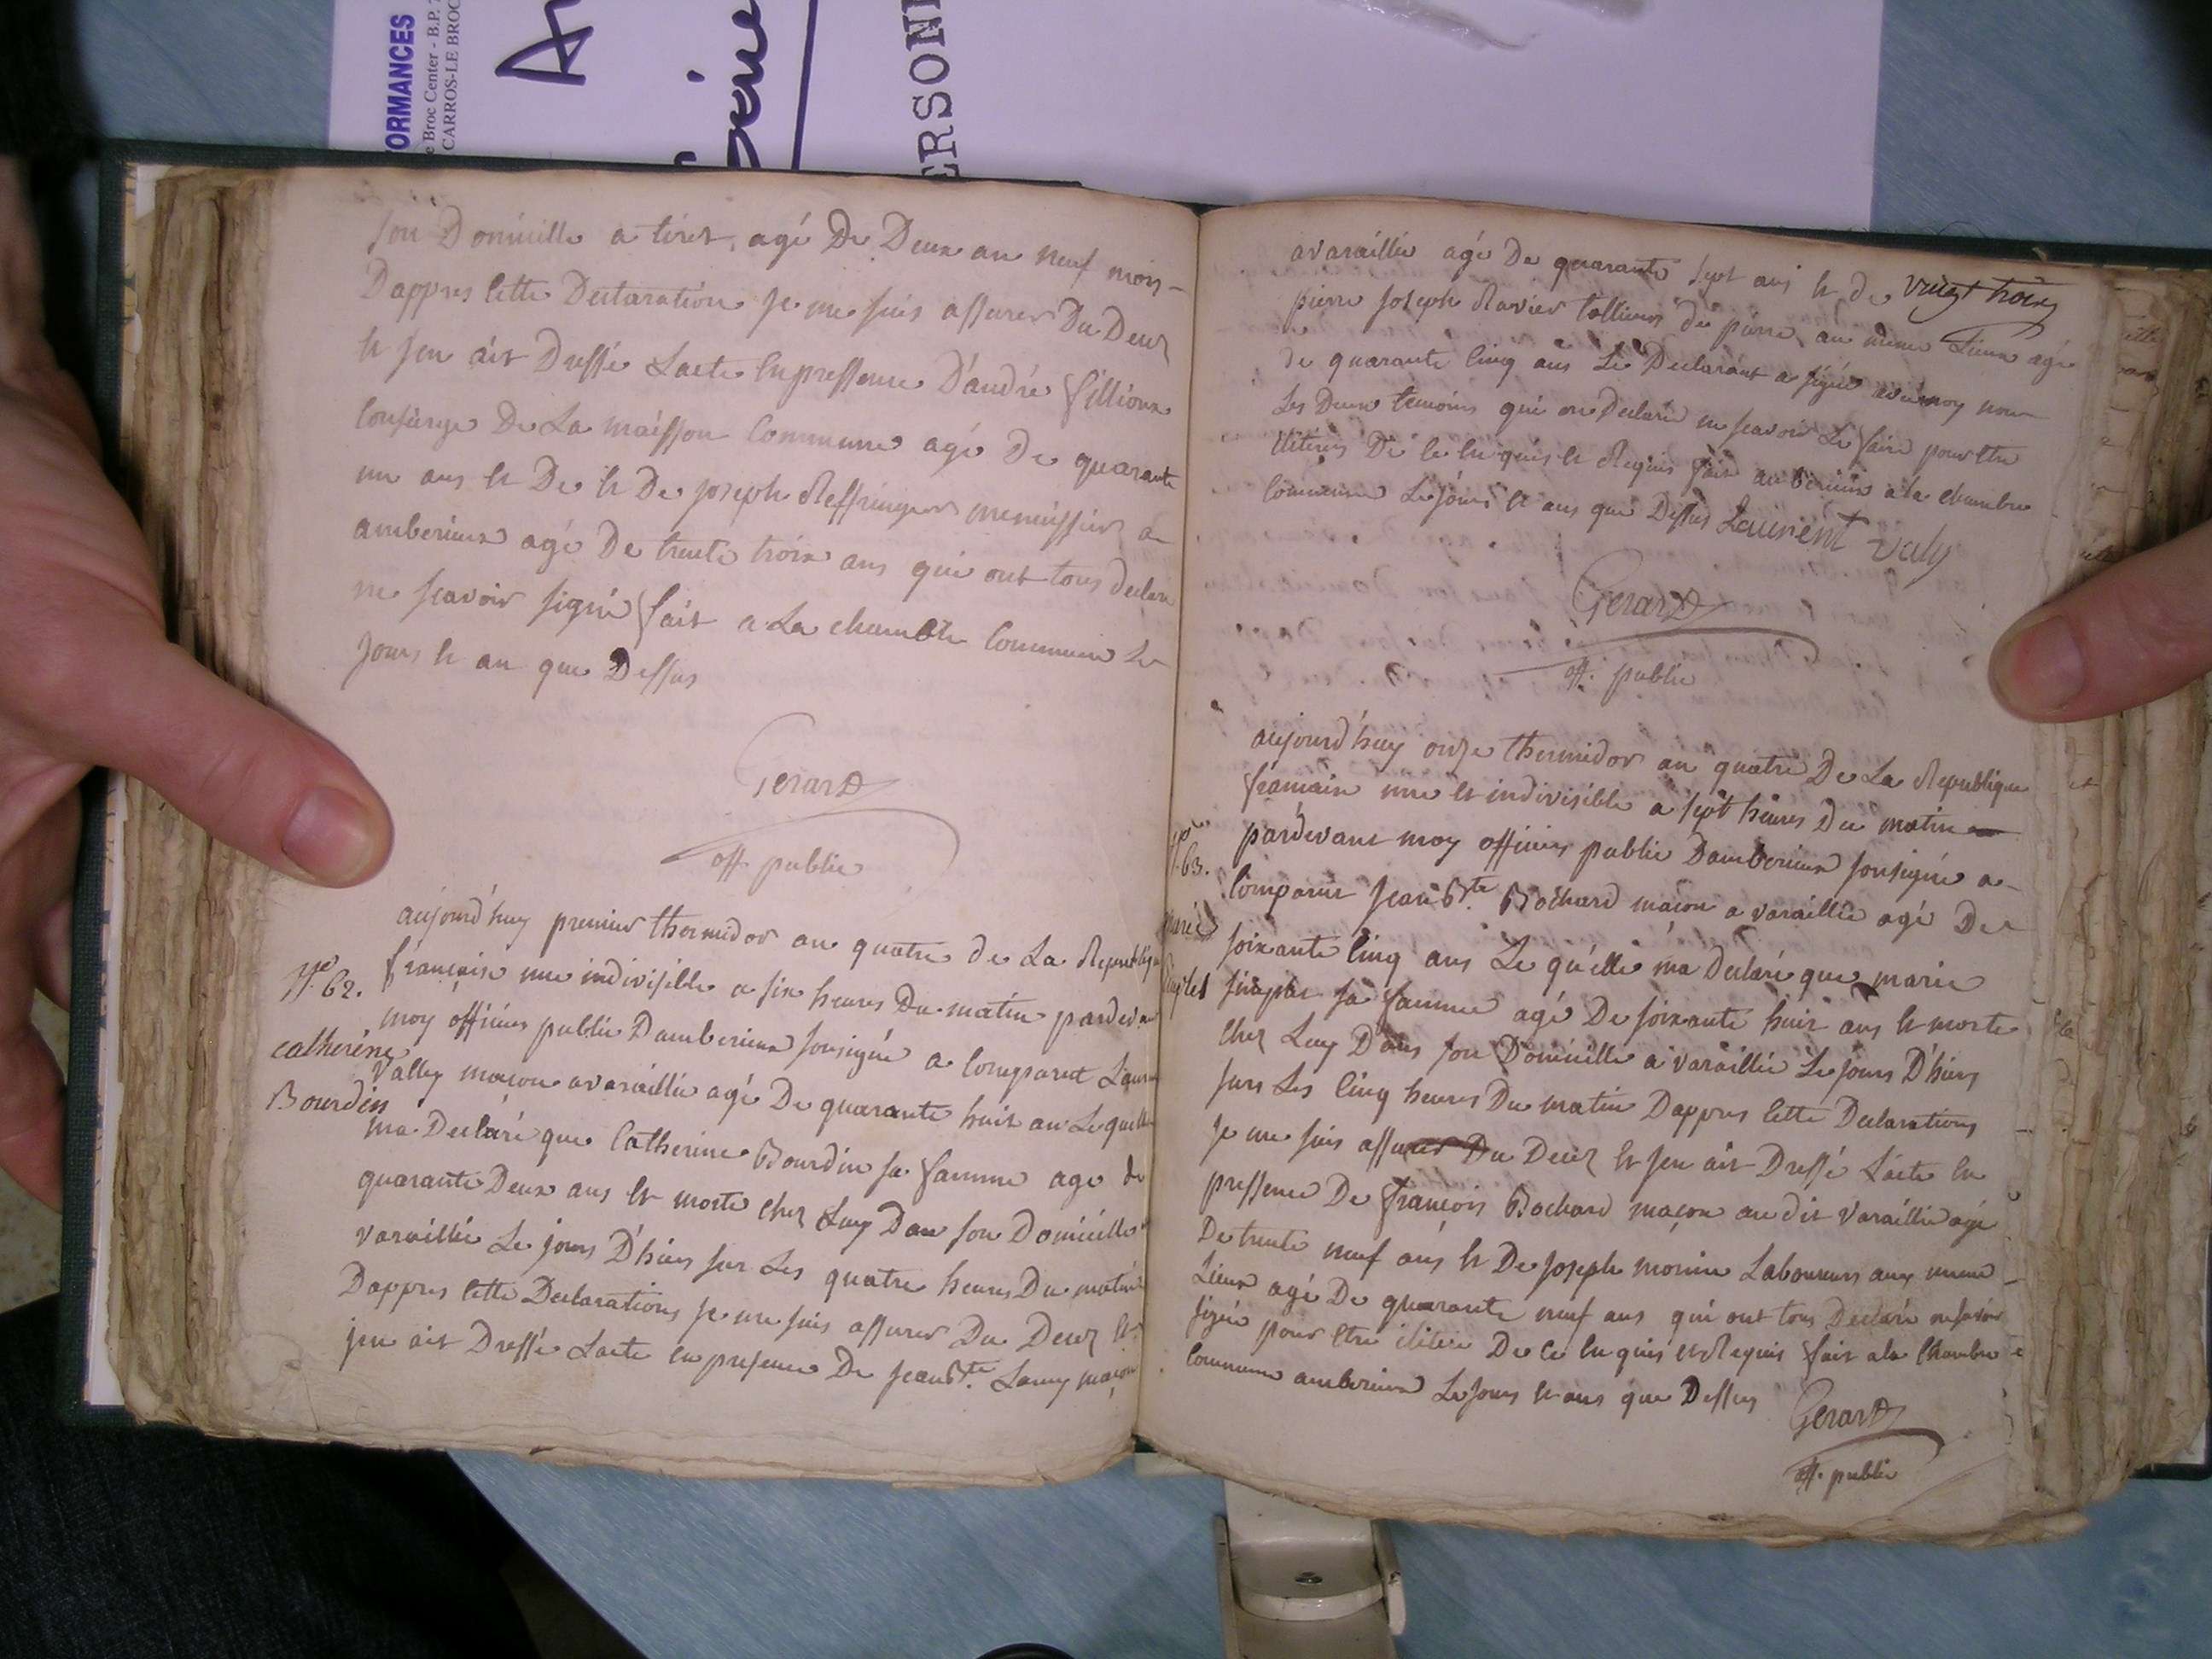 ORMANCES
e Broc Center - B.P.
CARROS-LE BROC
ERSON
son Domicille a tiret, agé De Deux an neuf mois
Dappres cette Declaration je me suis assurer Du Decez
et jen ait Dressé Lacte en pressence D'andré fillioux
concierge De La maisson Commune agé De quarante
un ans et De et De joseph Reffringer menuissier a
amberieux agé De trente troix ans qui ont tous declaré
ne scavoir signé fait a La chambre Commune Le
jours et an que Dessus
Gerard
off. public
N° 62.
catherine
Bourdin
aujourd'huy premier thermidor an quatre de La Republique
française une indivisible a six heures Du matin pardevant
moy officier public Damberieux sousigné a comparut Laurent
Valley maçon a varaillie agé De quarante huit an Le quelle
ma Declaré que Catherine Bourdin sa famme age de
quarante Deux ans et morte chez Luy Dan son Domicille a
varaillie Le jours D'hiers sur Les quatre heures Du matin
Dappres cette Declarations je me suis assurer Du Decez et
jen ait Dressé Lacte en presence De jean Bte. Lamy maçon
avaraillie agé De quarante sept ans et de vingt trois
pierre joseph Ravier tallieurs de pierre au meme Lieux agé
de quarante cinq ans Le Declarant a signé avec moy non
Les Deux temoins qui on Declaré ne scavoir Le faire pour etre
illiteres De ce enquis et Requis fait amberieux a la chambre
commune Le jours et ans que Dessus Laurent Valy
Gerard
off. public
N° 63.
marie
aujourd'huy onze thermidor an quatre De La Republique
francaise une et indivisible a sept heures Du matin
pardevant moy officier public Damberieux sousigné a
comparut jean Bte. Bochard maçon a varaillie agé De
soixante cinq ans Le quelle ma Declaré que marie
sa famme agé De soixante huit ans et morte
chez Luy Dans son Domicille a varaillie Le jours D'hiers
surs Les cinq heures Du matin Dappres cette Declarations
je me suis assurer Du Decez et jen ait Dressé Lacte en
pressence De françois Bochard maçon au dit varaillie agé
De trente neuf ans et De joseph morin Laboureurs aux meme
Lieux agé De quarante neuf ans qui ont tous Declaré ne scavoir
signé pour etre ilitere De ce enquis et Requis fait a la Chambre
commune amberieux Le jours et ans que Dessus
Gerard
off. public